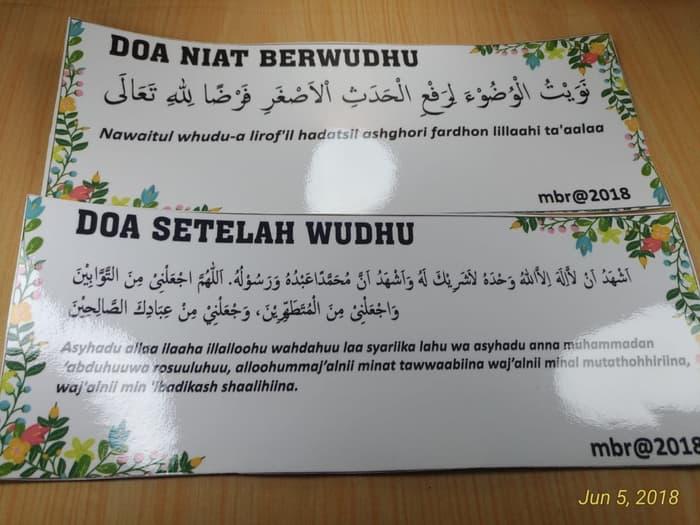 DOA NIAT BERWUDHU
نَوَيْتُ الْوُضُوْءَ لِرَفْعِ الْحَدَثِ اْلاَصْغَرِ فَرْضًا لِلّٰهِ تَعَالَى
Nawaitul whudu-a lirof'il hadatsil ashghori fardhon lillaahi ta'aalaa
mbr@2018
DOA SETELAH WUDHU
اَشْهَدُ اَنْ لاَاِلَهَ اِلاَّاللهُ وَحْدَهُ لاَشَرِيْكَ لَهُ وَاَشْهَدُ اَنَّ مُحَمَّدًاعَبْدُهُ وَرَسُوْلُهُ. اَللّٰهُمَّ اجْعَلْنِىْ مِنَ التَّوَّابِيْنَ
وَاجْعَلْنِىْ مِنَ الْمُتَطَهِّرِيْنَ، وَجْعَلْنِيْ مِنْ عِبَادِكَ الصَّالِحِيْنَ
Asyhadu allaa ilaaha illalloohu wahdahuu laa syariika lahu wa asyhadu anna muhammadan
'abduhuuwa rosuuluhuu, alloohummaj'alnii minat tawwaabiina waj'alnii minal mutathohhiriina,
waj'alnii min 'ibadikash shaalihiina.
mbr@2018
Jun 5, 2018